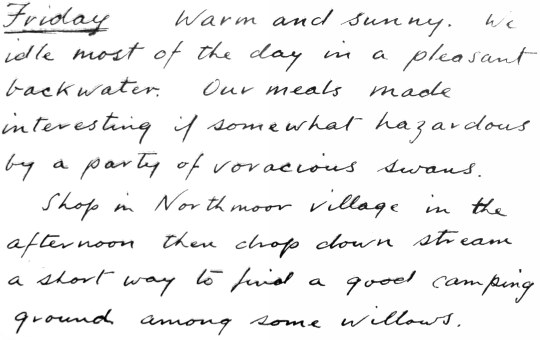 Friday Warm and sunny. We
idle most of the day in a pleasant
backwater. Our meals made
interesting if somewhat hazardous
by a party of voracious swans.
Shop in Northmoor village in the
afternoon then drop down stream
a short way to find a good camping
ground among some willows.